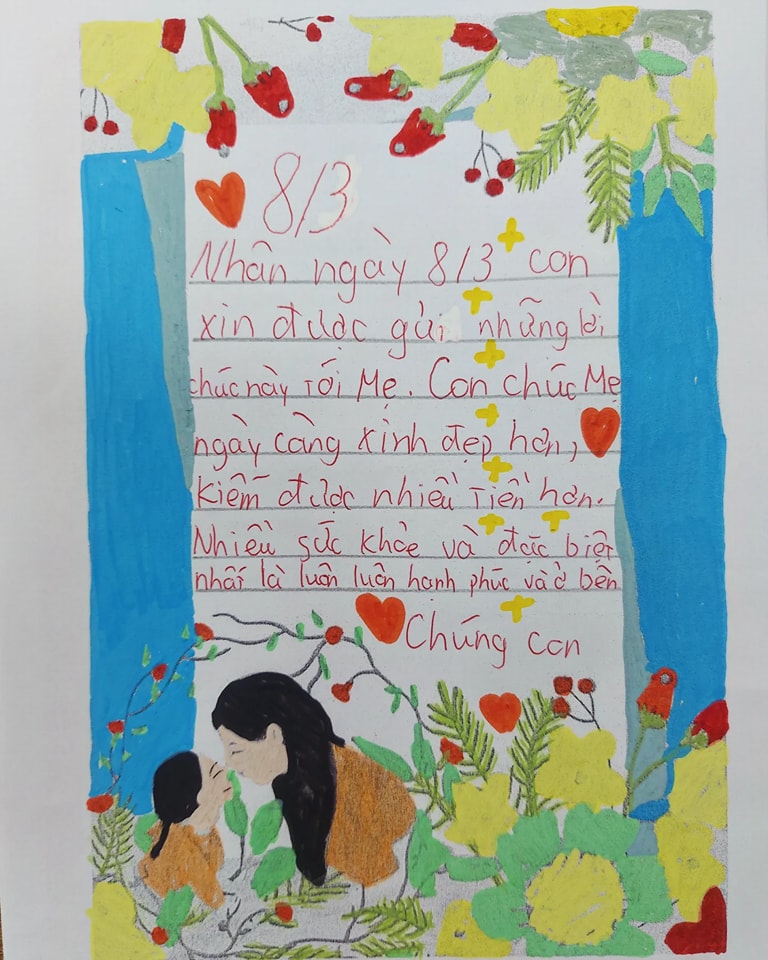 8/3
Nhân ngày 8/3 con
xin được gửi những lời
chúc này tới Mẹ. Con chúc Mẹ
ngày càng xinh đẹp hơn,
kiếm được nhiều tiền hơn.
Nhiều sức khỏe và đặc biệt
nhất là luôn luôn hạnh phúc và ở bên
Chúng con